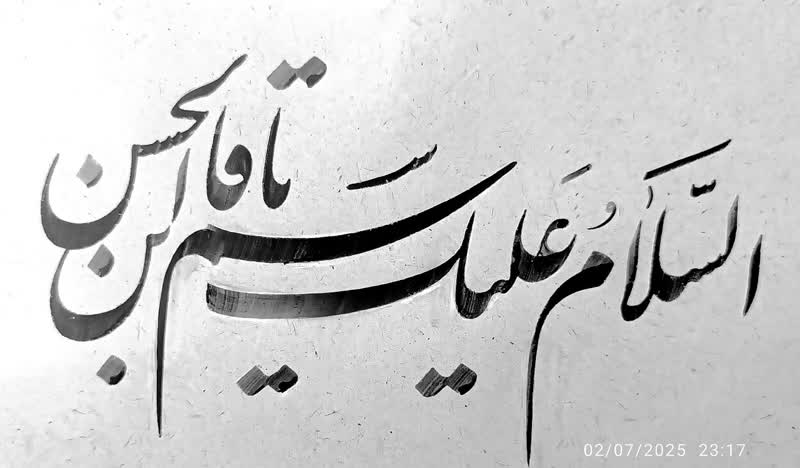 السَّلامُ عَلیک یا قاسم ابن الحسن
02/07/2025 23:17